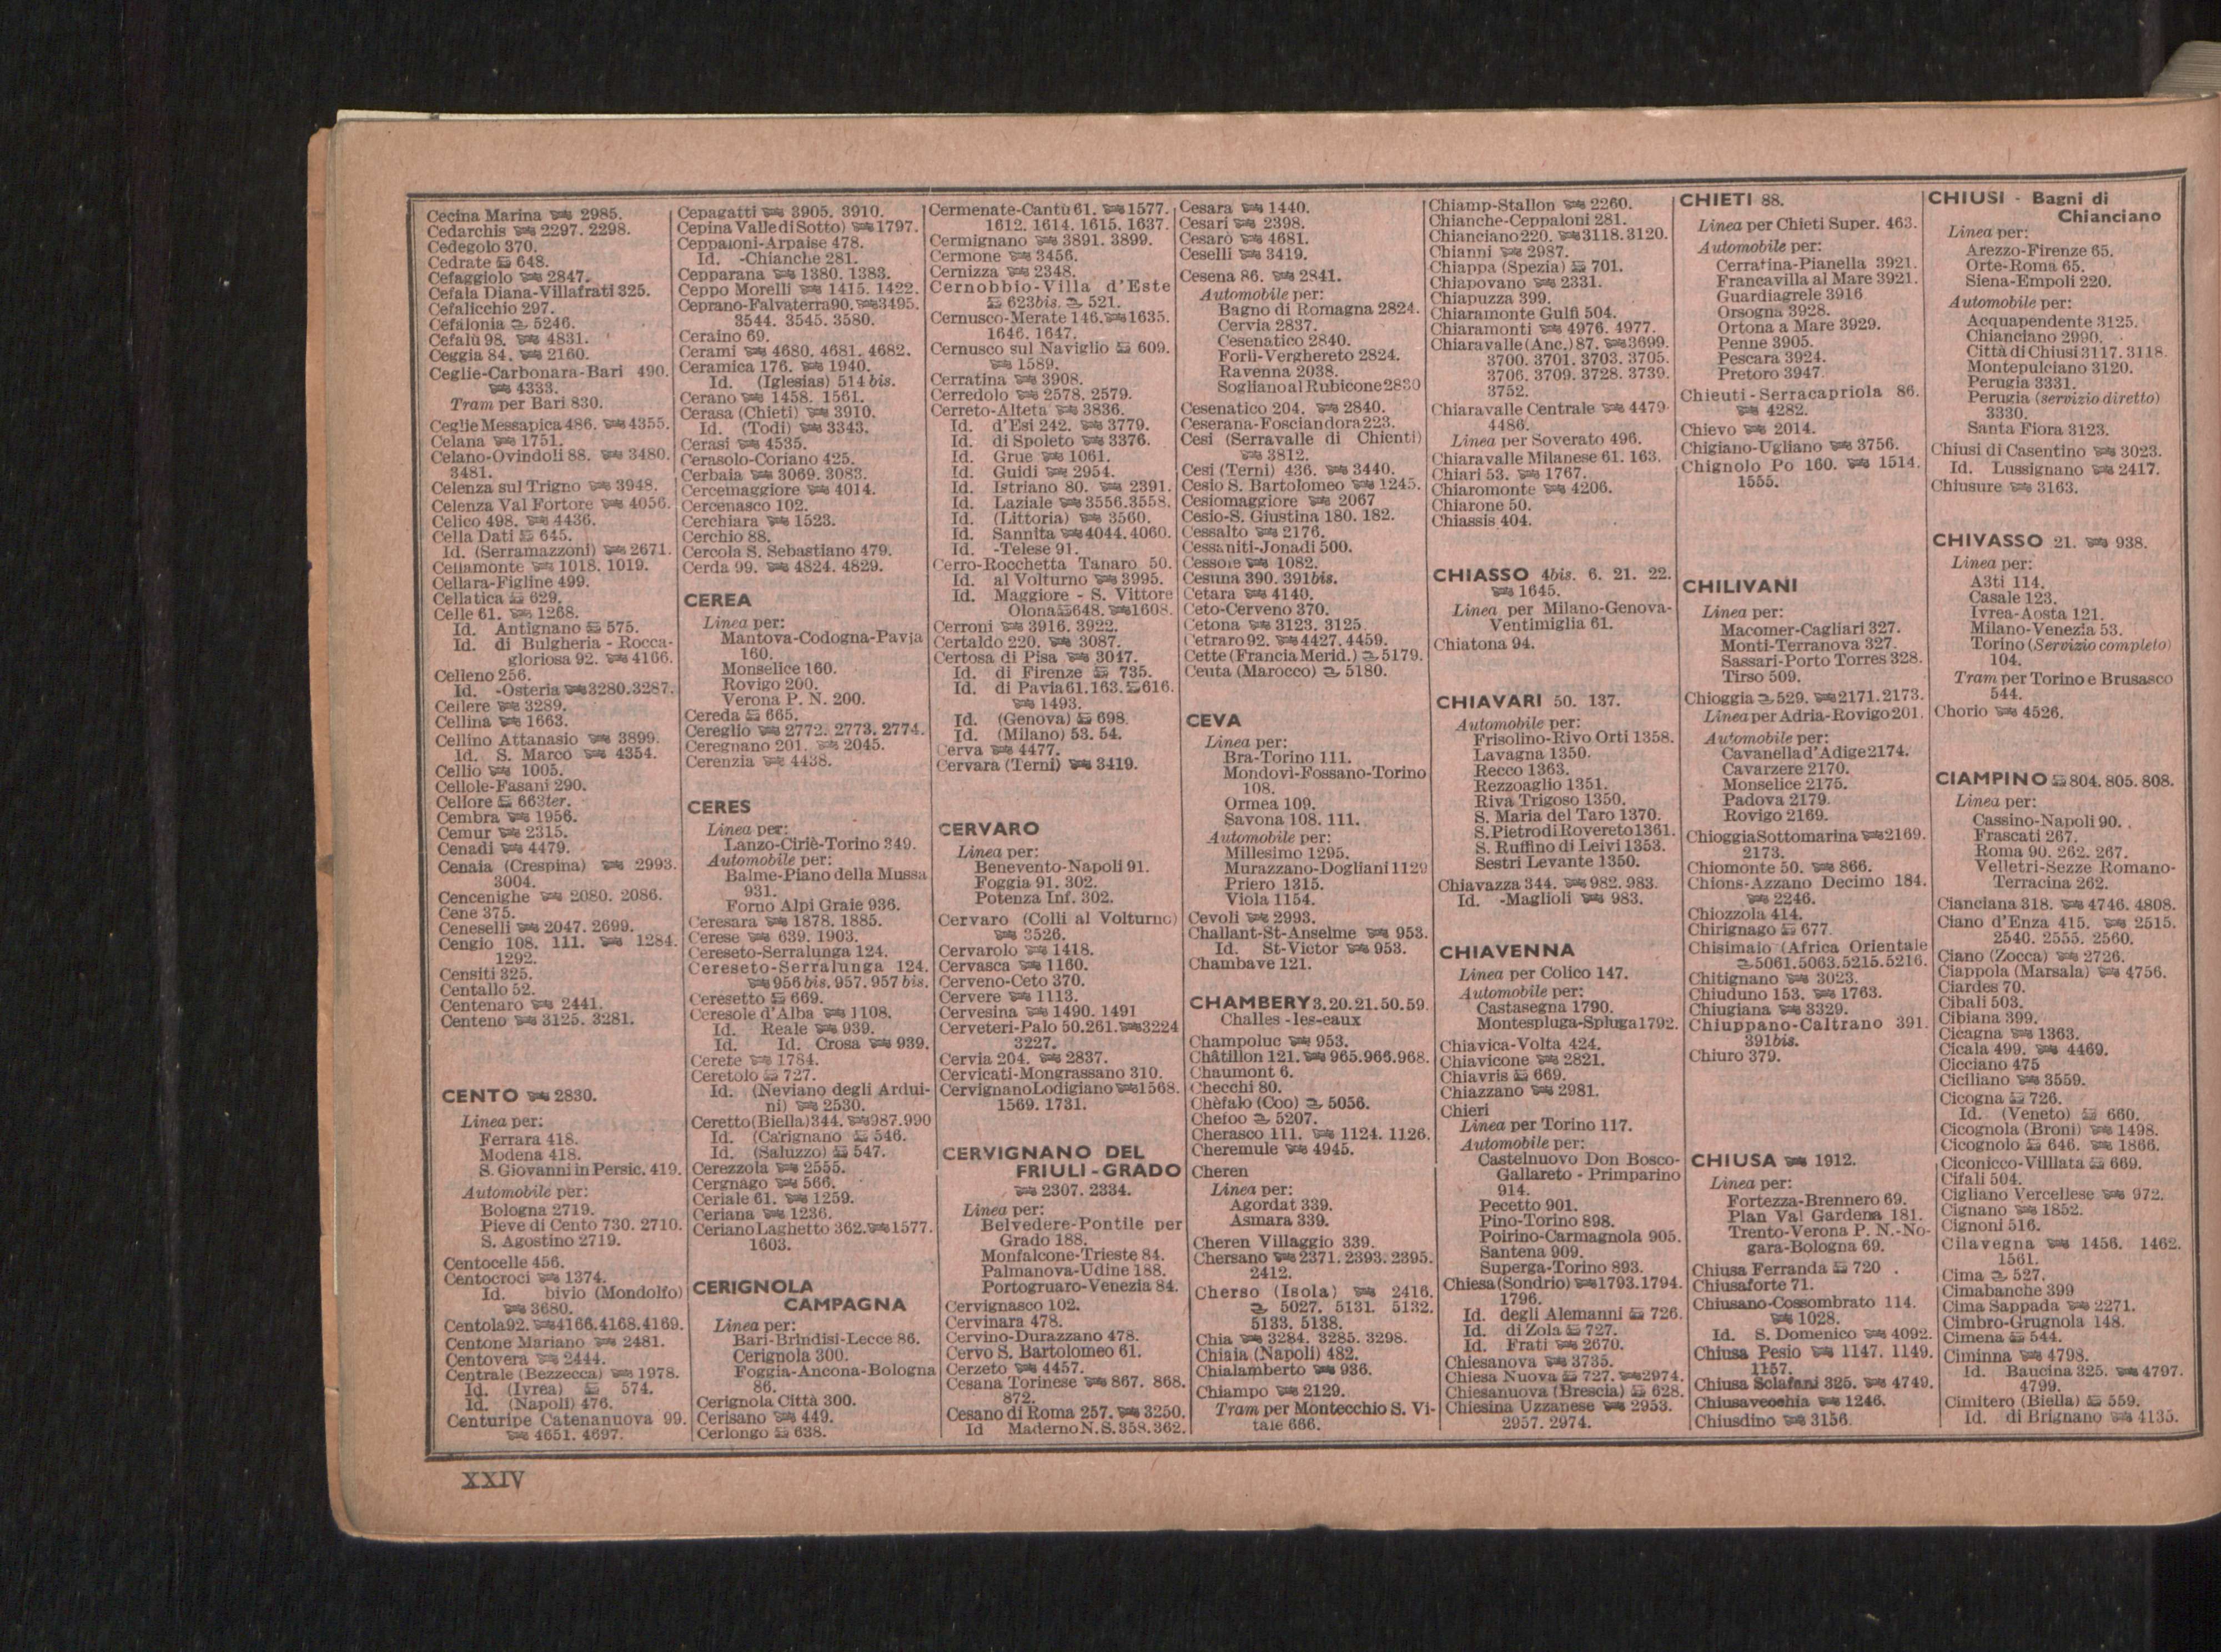 Cecina Marina 2985.
Cedarchis 2297. 2298.
Cedegolo 370.
Cedrate 648.
Cefaggiolo 2847.
Cefala Diana-Villafrati 325.
Cefalicchio 297.
Cefalonia 5246.
Cefalù 98. 4831.
Ceggia 84. 2160.
Ceglie-Carbonara-Bari 490.
4333.
Tram per Bari 830.
Ceglie Messapica 486. 4355.
Celana 1751.
Celano-Ovindoli 88. 3480.
3481.
Celenza sul Trigno 3948.
Celenza Val Fortore 4056.
Celico 498. 4436.
Cella Dati 645.
Id. (Serramazzoni) 2671.
Cellamonte 1018. 1019.
Cellara-Figline 499.
Cellatica 629.
Celle 61. 1268.
Id. Antignano 575.
Id. di Bulgheria - Rocca-
gloriosa 92. 4166.
Celleno 256.
Id. -Osteria 3280. 3287.
Cellere 3289.
Cellina 1663.
Cellino Attanasio 3899.
Id. S. Marco 4354.
Cellio 1005.
Cellole-Fasani 290.
Cellore 663ter.
Cembra 1956.
Cemur 2315.
Cenadi 4479.
Cenaia (Crespina) 2993.
3004.
Cencenighe 2080. 2086.
Cene 375.
Ceneselli 2047. 2699.
Cengio 108. 111. 1284.
1292.
Censiti 325.
Centallo 52.
Centenaro 2441.
Centeno 3125. 3281.
CENTO 2830.
Linea per:
Ferrara 418.
Modena 418.
S. Giovanni in Persic. 419.
Automobile per:
Bologna 2719.
Pieve di Cento 730. 2710.
S. Agostino 2719.
Centocelle 456.
Centocroci 1374.
Id. bivio (Mondolfo)
3680.
Centola 92. 4166. 4168. 4169.
Centone Mariano 2481.
Centovera 2444.
Centrale (Bezzecca) 1978.
Id. (Ivrea) 574.
Id. (Napoli) 476.
Centuripe Catenanuova 99.
4651. 4697.
Cepagatti 3905. 3910.
Cepina Valle di Sotto) 1797.
Ceppaloni-Arpaise 478.
Id. -Chianche 281.
Cepparana 1380. 1383.
Ceppo Morelli 1415. 1422.
Ceprano-Falvaterra 90. 3495.
3544. 3545. 3580.
Ceraino 69.
Cerami 4680. 4681. 4682.
Ceramica 176. 1940.
Id. (Iglesias) 514bis.
Cerano 1458. 1561.
Cerasa (Chieti) 3910.
Id. (Todi) 3343.
Cerasi 4535.
Cerasolo-Coriano 425.
Cerbaia 3069. 3083.
Cercemaggiore 4014.
Cercenasco 102.
Cerchiara 1523.
Cerchio 88.
Cercola S. Sebastiano 479.
Cerda 99. 4824. 4829.
CEREA
Linea per:
Mantova-Codogna-Pavia
160.
Monselice 160.
Rovigo 200.
Verona P. N. 200.
Cereda 665.
Cereglio 2772. 2773. 2774.
Ceregnano 201. 2045.
Cerenzia 4438.
CERES
Linea per:
Lanzo-Ciriè-Torino 349.
Automobile per:
Balme-Piano della Mussa
931.
Forno Alpi Graie 936.
Ceresara 1878. 1885.
Cerese 639. 1903.
Cereseto-Serralunga 124.
Cereseto-Serralunga 124.
956 bis. 957. 957 bis.
Ceresetto 669.
Ceresole d'Alba 1108.
Id. Reale 939.
Id. Id. Crosa 939.
Cerete 1784.
Ceretolo 727.
Id. (Neviano degli Ardui-
ni) 2530.
Ceretto (Biella) 344. 987. 990
Id. (Carignano 546.
Id. (Saluzzo) 547.
Cerezzola 2555.
Cergnago 566.
Ceriale 61. 1259.
Ceriana 1236.
Ceriano Laghetto 362. 1577.
1603.
CERIGNOLA
CAMPAGNA
Linea per:
Bari-Brindisi-Lecce 86.
Cerignola 300.
Foggia-Ancona-Bologna
86.
Cerignola Città 300.
Cerisano 449.
Cerlongo 638.
Cermenate-Cantù 61. 1577.
1612. 1614. 1615. 1637.
Cermignano 3891. 3899.
Cermone 3456.
Cernizza 2348.
Cernobbio-Villa d'Este
623bis. 521.
Cernusco-Merate 146. 1635.
1646. 1647.
Cernusco sul Naviglio 609.
1589.
Cerratina 3908.
Cerredolo 2578. 2579.
Cerreto-Alteta 3836.
Id. d'Esi 242. 3779.
Id. di Spoleto 3376.
Id. Grue 1061.
Id. Guidi 2954.
Id. Istriano 80. 2391.
Id. Laziale 3556. 3558.
Id. (Littoria) 3560.
Id. Sannita 4044. 4060.
Id. -Telese 91.
Cerro-Rocchetta Tanaro 50.
Id. al Volturno 3995.
Id. Maggiore - S. Vittore
Olona 648. 1608.
Cerroni 3916. 3922.
Certaldo 220. 3087.
Certosa di Pisa 3047.
Id. di Firenze 735.
Id. di Pavia 61. 163. 616.
1493.
Id. (Genova) 698.
Id. (Milano) 53. 54.
Cerva 4477.
Cervara (Terni) 3419.
CERVARO
Linea per:
Benevento-Napoli 91.
Foggia 91. 302.
Potenza Inf. 302.
Cervaro (Colli al Volturno)
3526.
Cervarolo 1418.
Cervasca 1160.
Cerveno-Ceto 370.
Cervere 1113.
Cervesina 1490. 1491
Cerveteri-Palo 50. 261. 3224
3227.
Cervia 204. 2837.
Cervicati-Mongrassano 310.
Cervignano Lodigiano 1568.
1569. 1731.
CERVIGNANO DEL
FRIULI - GRADO
2307. 2334.
Linea per:
Belvedere-Pontile per
Grado 188.
Monfalcone-Trieste 84.
Palmanova-Udine 188.
Portogruaro-Venezia 84.
Cervignasco 102.
Cervinara 478.
Cervino-Durazzano 478.
Cervo S. Bartolomeo 61.
Cerzeto 4457.
Cesana Torinese 867. 868.
872.
Cesano di Roma 257. 3250.
Id Maderno N. S. 358. 362.
Cesara 1440.
Cesari 2398.
Cesarò 4681.
Ceselli 3419.
Cesena 86. 2841.
Automobile per:
Bagno di Romagna 2824.
Cervia 2837.
Cesenatico 2840.
Forlì-Verghereto 2824.
Ravenna 2038.
Sogliano al Rubicone 2830
Cesenatico 204. 2840.
Ceserana-Fosciandora 223.
Cesi (Serravalle di Chienti)
3812.
Cesi (Terni) 436. 3440.
Cesio S. Bartolomeo 1245.
Cesiomaggiore 2067
Cesio-S. Giustina 180. 182.
Cessalto 2176.
Cessaniti-Jonadi 500.
Cessole 1082.
Cesuna 390. 391bis.
Cetara 4140.
Ceto-Cerveno 370.
Cetona 3123. 3125
Cetraro 92. 4427. 4459.
Cette (Francia Merid.) 5179.
Ceuta (Marocco) 5180.
CEVA
Linea per:
Bra-Torino 111.
Mondovì-Fossano-Torino
108.
Ormea 109.
Savona 108. 111.
Automobile per:
Millesimo 1295.
Murazzano-Dogliani 1129
Priero 1315.
Viola 1154.
Cevoli 2993.
Challant-St-Anselme 953.
Id. St-Victor 953.
Chambave 121.
CHAMBERY 3. 20. 21. 50. 59.
Challes -les-eaux
Champoluc 953.
Châtillon 121. 965. 966. 968.
Chaumont 6.
Checchi 80.
Chèfalo (Coo) 5056.
Chefoo 5207.
Cherasco 111. 1124. 1126.
Cheremule 4945.
Cheren
Linea per:
Agordat 339.
Asmara 339.
Cheren Villaggio 339.
Chersano 2371. 2393. 2395.
2412.
Cherso (Isola) 2416.
5027. 5131. 5132.
5133. 5138.
Chia 3284. 3285. 3298.
Chiaia (Napoli) 482.
Chialamberto 936.
Chiampo 2129.
Tram per Montecchio S. Vi-
tale 666.
Chiamp-Stallon 2260.
Chianche-Ceppaloni 281.
Chianciano 220. 3118. 3120.
Chianni 2987.
Chiappa (Spezia) 701.
Chiapovano 2331.
Chiapuzza 399.
Chiaramonte Gulfi 504.
Chiaramonti 4976. 4977.
Chiaravalle (Anc.) 87. 3699.
3700. 3701. 3703. 3705.
3706. 3709. 3728. 3739.
3752.
Chiaravalle Centrale 4479.
4486.
Linea per Soverato 496.
Chiaravalle Milanese 61. 163.
Chiari 53. 1767.
Chiaromonte 4206.
Chiarone 50.
Chiassis 404.
CHIASSO 4bis. 6. 21. 22.
1645.
Linea per Milano-Genova-
Ventimiglia 61.
Chiatona 94.
CHIAVARI 50. 137.
Automobile per:
Frisolino-Rivo Orti 1358.
Lavagna 1350.
Recco 1363.
Rezzoaglio 1351.
Riva Trigoso 1350.
S. Maria del Taro 1370.
S. Pietro di Rovereto 1361.
S. Ruffino di Leivi 1353.
Sestri Levante 1350.
Chiavazza 344. 982. 983.
Id. -Maglioli 983.
CHIAVENNA
Linea per Colico 147.
Automobile per:
Castasegna 1790.
Montespluga-Spluga 1792.
Chiavica-Volta 424.
Chiavicone 2821.
Chiavris 669.
Chiazzano 2981.
Chieri
Linea per Torino 117.
Automobile per:
Castelnuovo Don Bosco-
Gallareto - Primparino
914.
Pecetto 901.
Pino-Torino 898.
Poirino-Carmagnola 905.
Santena 909.
Superga-Torino 893.
Chiesa (Sondrio) 1793. 1794.
1796.
Id. degli Alemanni 726.
Id. di Zola 727.
Id. Frati 2670.
Chiesanova 3735.
Chiesa Nuova 727. 2974.
Chiesanuova (Brescia) 628.
Chiesina Uzzanese 2953.
2957. 2974.
CHIETI 88.
Linea per Chieti Super. 463.
Automobile per:
Cerratina-Pianella 3921.
Francavilla al Mare 3921.
Guardiagrele 3916
Orsogna 3928.
Ortona a Mare 3929.
Penne 3905.
Pescara 3924.
Pretoro 3947.
Chieuti-Serracapriola 86.
4282.
Chievo 2014.
Chigiano-Ugliano 3756.
Chignolo Po 160. 1514.
1555.
CHILIVANI
Linea per:
Macomer-Cagliari 327.
Monti-Terranova 327.
Sassari-Porto Torres 328.
Tirso 509.
Chioggia 529. 2171. 2173.
Linea per Adria-Rovigo 201.
Automobile per:
Cavanella d'Adige 2174.
Cavarzere 2170.
Monselice 2175.
Padova 2179.
Rovigo 2169.
Chioggia Sottomarina 2169.
2173.
Chiomonte 50. 866.
Chions-Azzano Decimo 184.
2246.
Chiozzola 414.
Chirignago 677.
Chisimaio (Africa Orientale
5061. 5063. 5215. 5216.
Chitignano 3023.
Chiuduno 153. 1763.
Chiugiana 3329.
Chiuppano-Caltrano 391.
391bis.
Chiuro 379.
CHIUSA 1912.
Linea per:
Fortezza-Brennero 69.
Plan Val Gardena 181.
Trento-Verona P. N.-No-
gara-Bologna 69.
Chiusa Ferranda 720 .
Chiusaforte 71.
Chiusano-Cossombrato 114.
1028.
Id. S. Domenico 4092.
Chiusa Pesio 1147. 1149.
1157.
Chiusa Sclafani 325. 4749.
Chiusavecchia 1246.
Chiusdino 3156.
CHIUSI - Bagni di
Chianciano
Linea per:
Arezzo-Firenze 65.
Orte-Roma 65.
Siena-Empoli 220.
Automobile per:
Acquapendente 3125.
Chianciano 2990.
Città di Chiusi 3117. 3118.
Montepulciano 3120.
Perugia 3331.
Perugia (servizio diretto)
3330.
Santa Fiora 3123.
Chiusi di Casentino 3023.
Id. Lussignano 2417.
Chiusure 3163.
CHIVASSO 21. 938.
Linea per:
A3ti 114.
Casale 123.
Ivrea-Aosta 121.
Milano-Venezia 53.
Torino (Servizio completo)
104.
Tram per Torino e Brusasco
544.
Chorio 4526.
CIAMPINO 804. 805. 808.
Linea per:
Cassino-Napoli 90. .
Frascati 267.
Roma 90. 262. 267.
Velletri-Sezze Romano-
Terracina 262.
Cianciana 318. 4746. 4808.
Ciano d'Enza 415. 2515.
2540. 2555. 2560.
Ciano (Zocca) 2726.
Ciappola (Marsala) 4756.
Ciardes 70.
Cibali 503.
Cibiana 399.
Cicagna 1363.
Cicala 499. 4469.
Cicciano 475
Ciciliano 3559.
Cicogna 726.
Id. (Veneto) 660.
Cicognola (Broni) 1498.
Cicognolo 646. 1866.
Ciconicco-Villlata 669.
Cifali 504.
Cigliano Vercellese 972.
Cignano 1852.
Cignoni 516.
Cilavegna 1456. 1462.
1561.
Cima 527.
Cimabanche 399
Cima Sappada 2271.
Cimbro-Grugnola 148.
Cimena 544.
Ciminna 4798.
Id. Baucina 325. 4797.
4799.
Cimitero (Biella) 559.
Id. di Brignano 4135.
XXIV